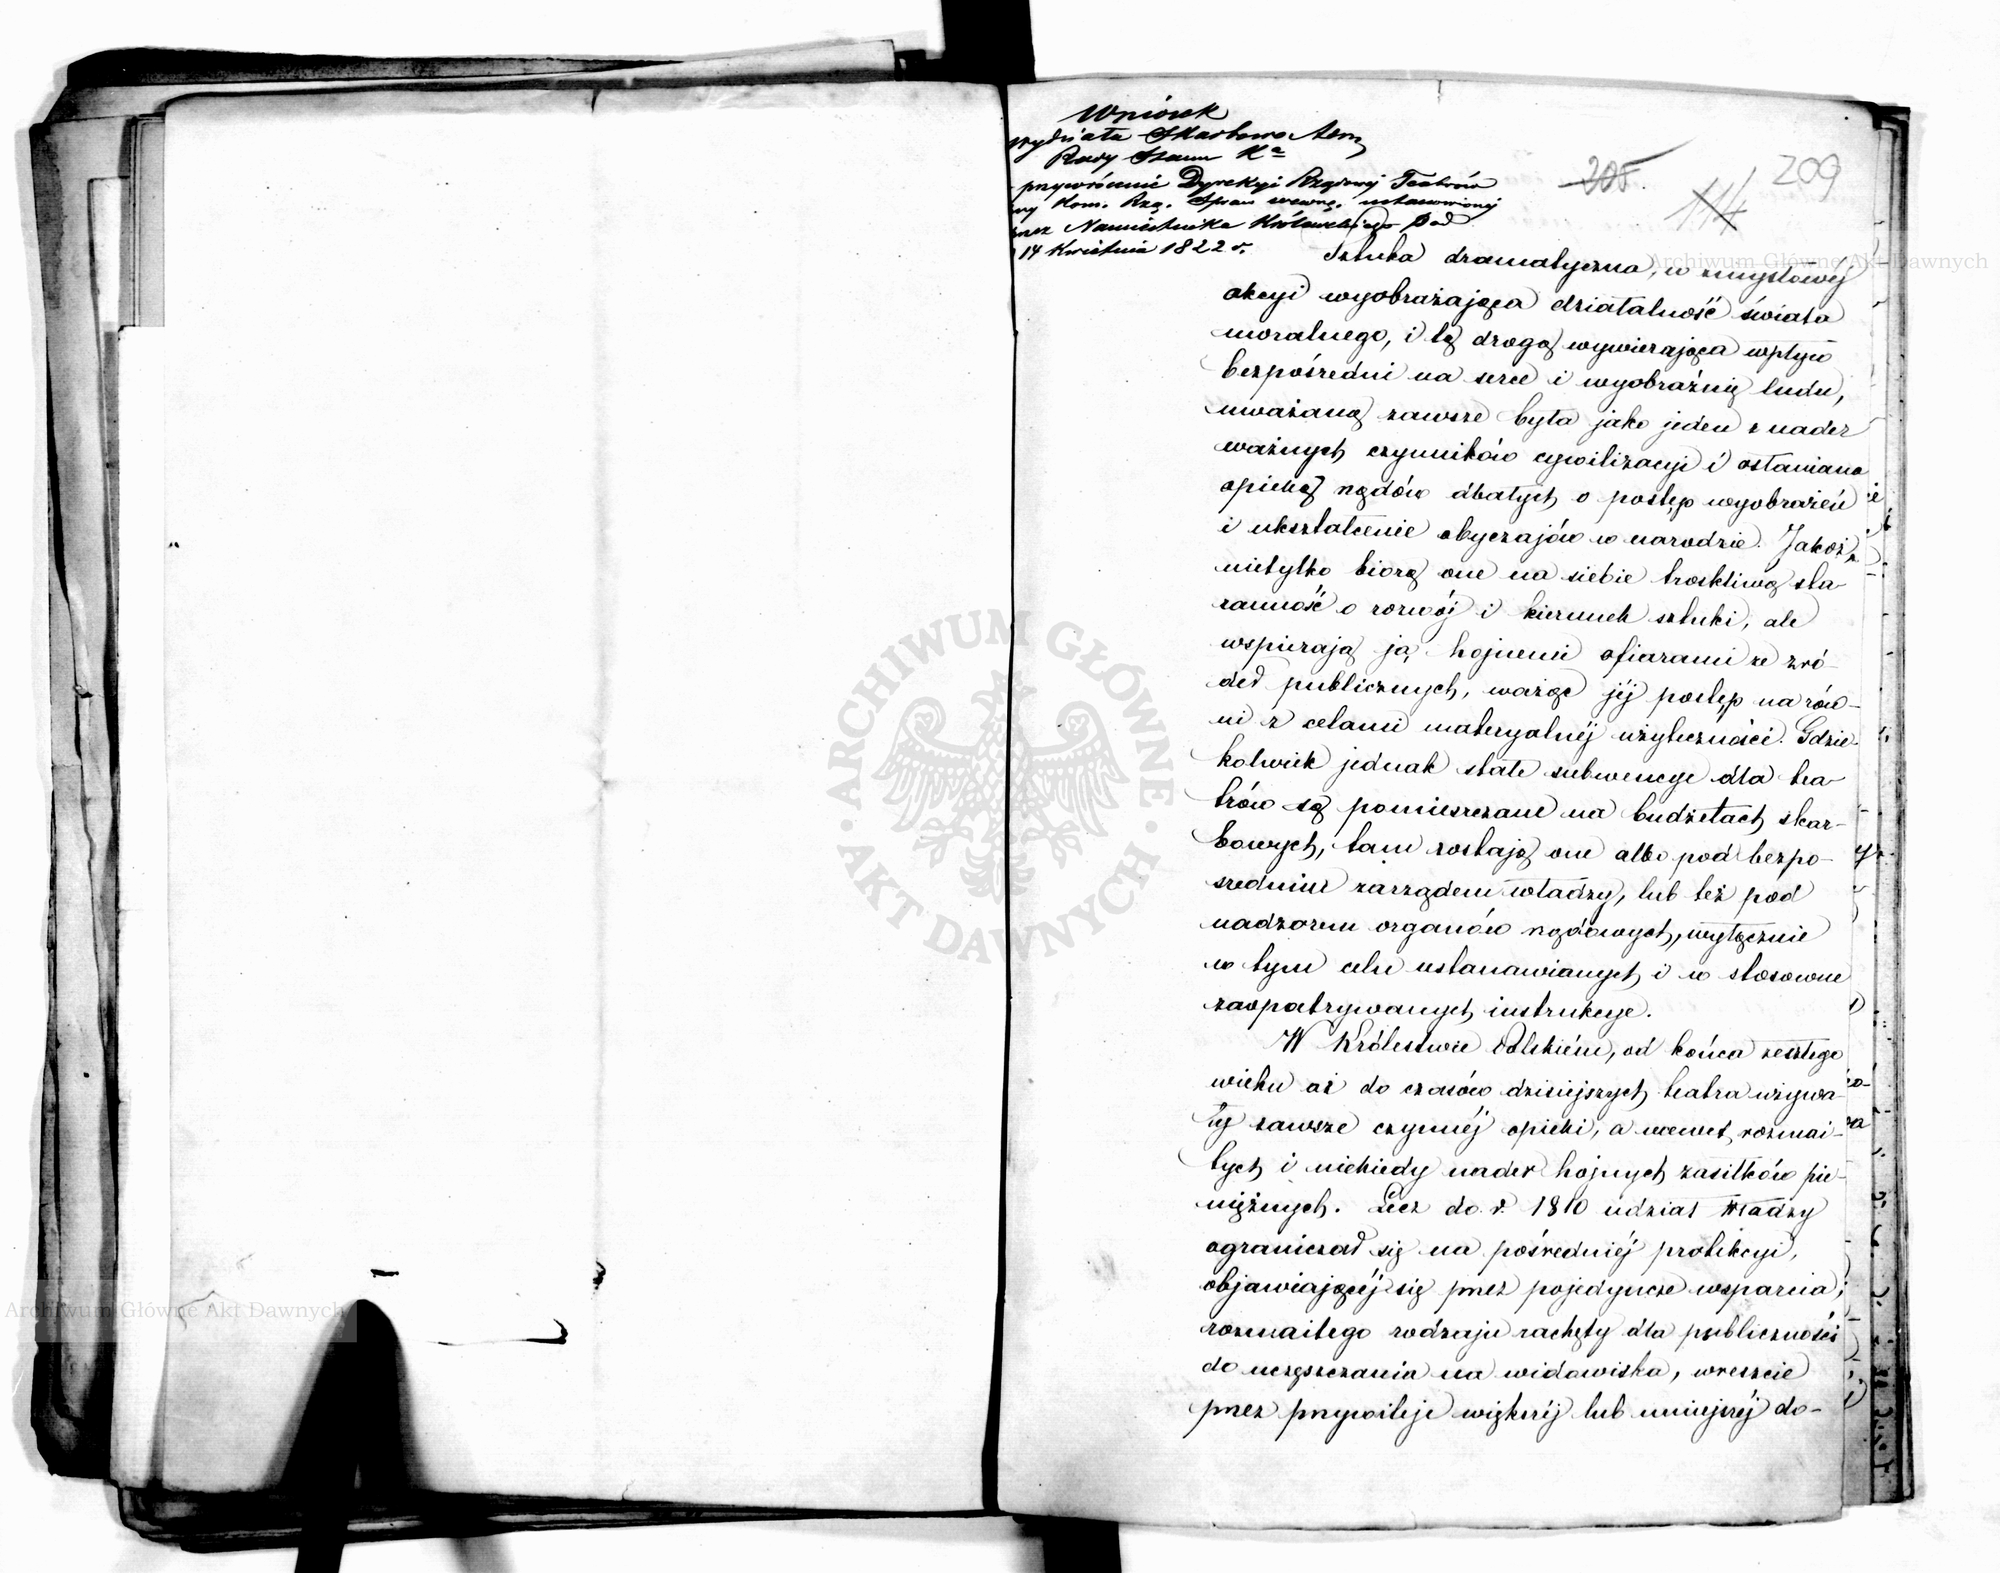 Wniosek
wydziału Skarbowo Adm
Rady Stanu Kr
przywrócenie Dyrekcyi Rządowej Teatrów
przy Kom. Rzą. Spraw wewnę. ustanowionej
przez Namiestnika Królewskiego pod
14 Kwietnia 1822 r.
205.
114
209
Sztuka dramatyczna, w zmysłowej
akcyi wyobrażająca działalność świata
moralnego, i tą drogą wywierająca wpływ
bezpośredni na serce i wyobraźnię ludu,
uważaną zawsze była jako jeden z nader
ważnych czynników cywilizacyi i osłaniana
opieką rządów dbałych o postęp wyobrażeń
i ukształcenie obyczajów w narodzie. Jakoż
nietylko biorą one na siebie troskliwą sta
ranność o rozwój i kierunek sztuki, ale
wspierają ją hojnemi ofiarami ze źró-
deł publicznych, ważąc jéj postęp na rów-
ni z celami materyalnéj użyteczności. Gdzie-
kolwiek jednak stałe subwencye dla tea-
trów są pomieszczane na budżetach skar-
bowych, tam zostają one albo pod bezpo-
średnim zarządem władzy, lub też pod
nadzorem organów rządowych, wyłącznie
w tym celu ustanawianych i w stosowne
zaopatrywanych instrukcye.
W Królestwie Polskiém, od końca zeszłego
wieku aż do czasów dzisiejszych teatra używa-
ły zawsze czynnéj opieki, a nawet rozmai-
tych i niekiedy nader hojnych zasiłków pie-
niężnych. Lecz do r. 1810 udział władzy
ograniczał się na pośredniéj protekcyi,
objawiającéj się przez pojedyncze wsparcia,
rozmaitego rodzaju zachęty dla publiczności
do uczęszczania na widowiska, wreszcie
przez przywileje większéj lub mniejszéj do-
Archiwum Główne Akt Dawnych
ARCHIWUM GŁÓWNE
AKT DAWNYCH
Archiwum Główne Akt Dawnych